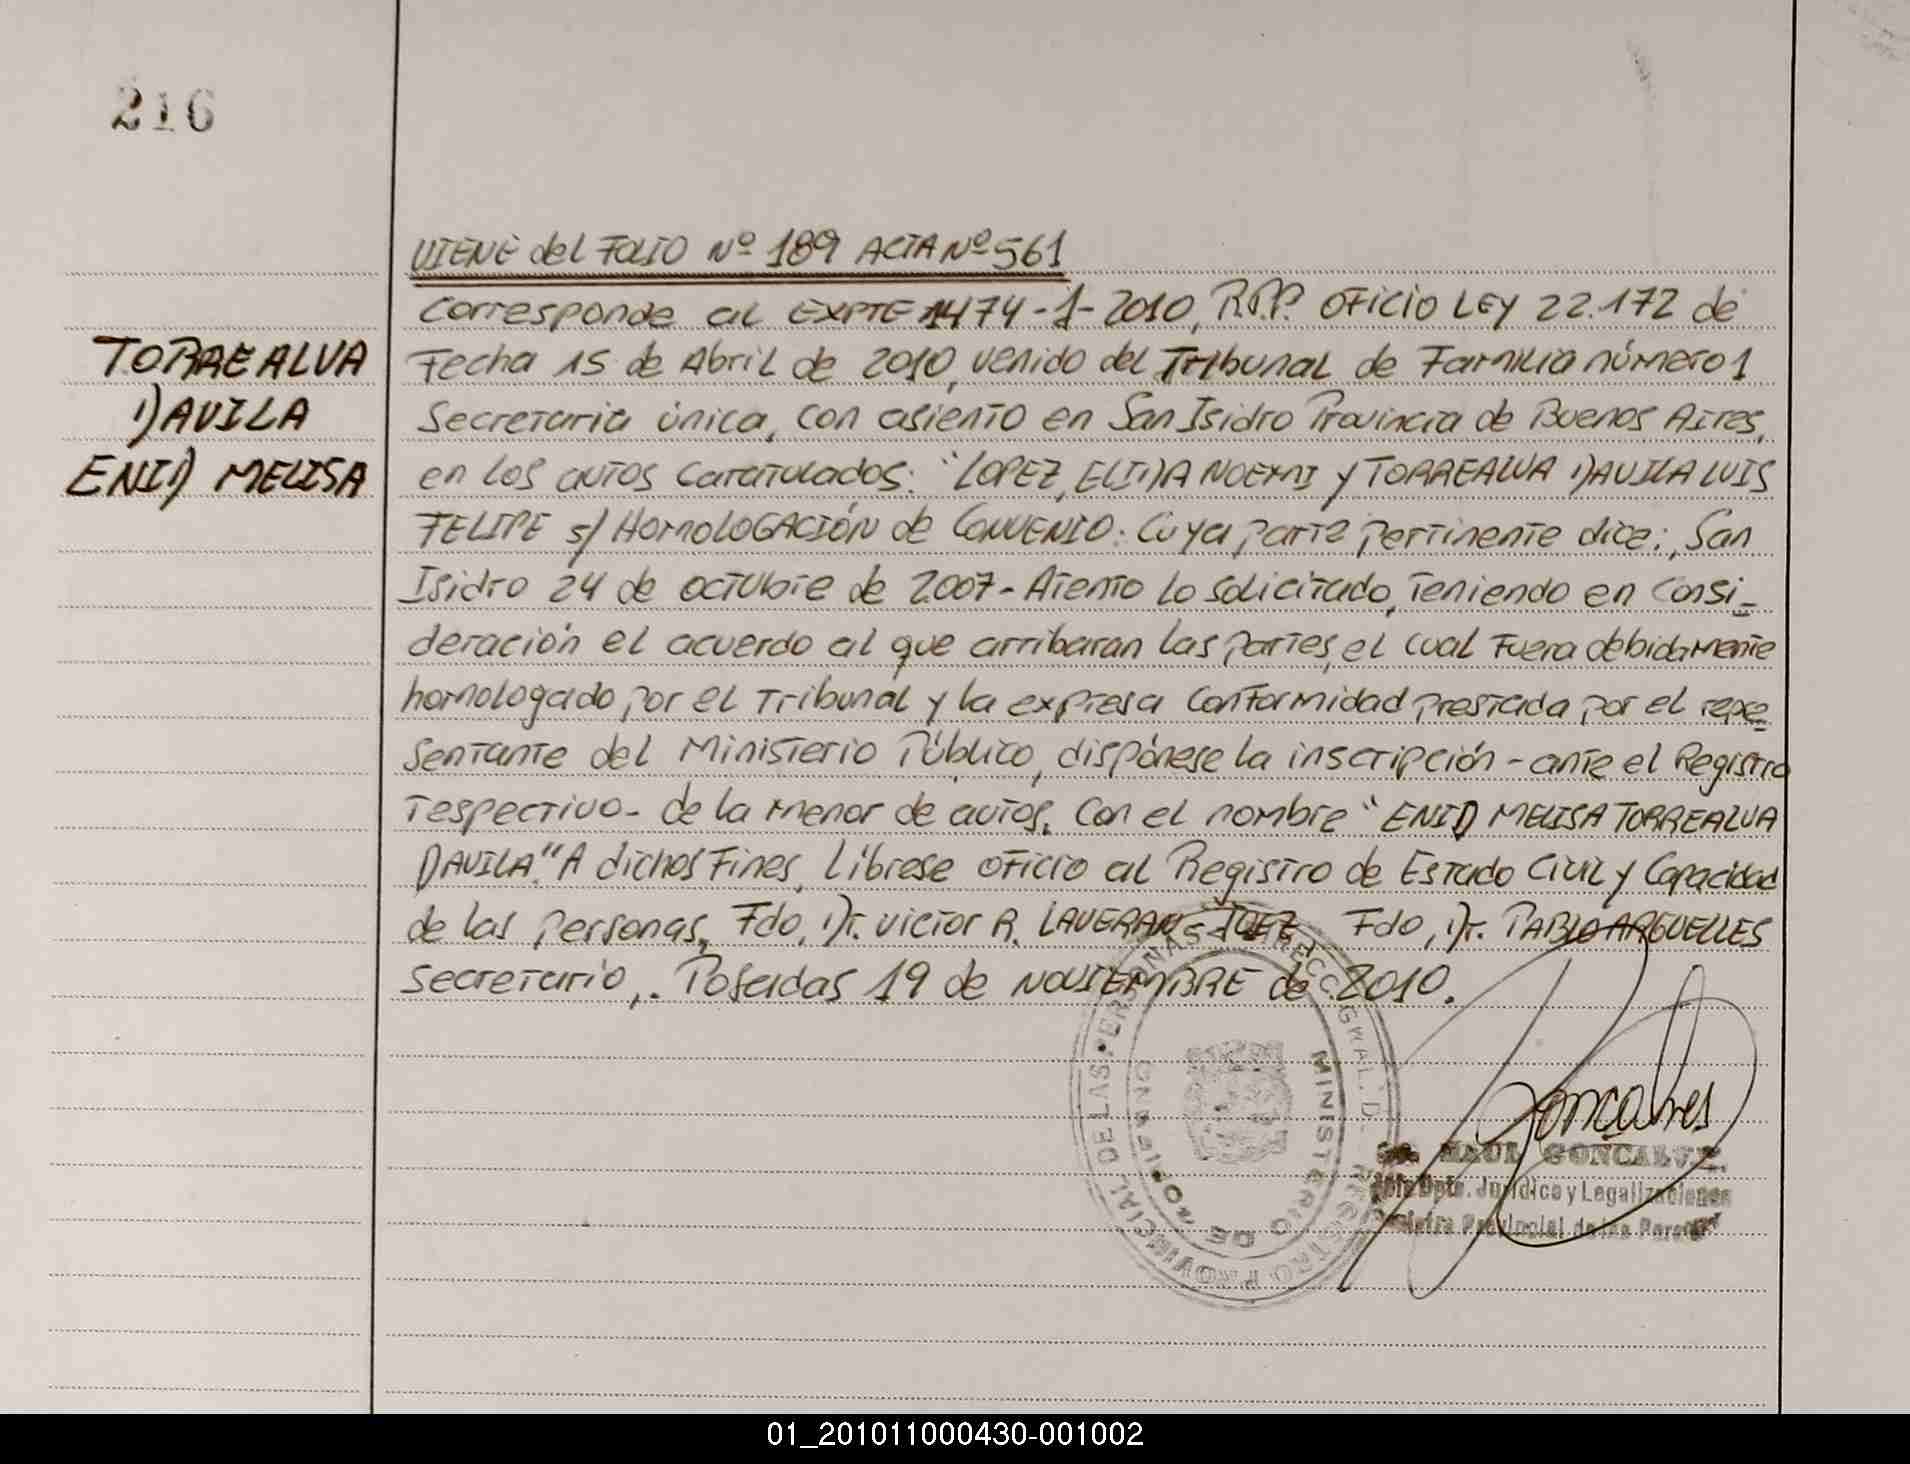 216
VIENE del FOLIO Nº 189 ACTA Nº 561
Corresponde al EXPTE 1474-J-2010, R.P.P. OFICIO LEY 22.172 de
Fecha 15 de Abril de 2010, venido del Tribunal de Familia número 1
Secretaria única, con asiento en San Isidro Provincia de Buenos Aires,
en los autos caratulados: "LOPEZ, ELIDA NOEMI y TORREALVA DAVILA LUIS
FELIPE s/ HOMOLOGACIÓN de CONVENIO: Cuya parte pertinente dice: San
Isidro 24 de octubre de 2007- Atento lo solicitado, Teniendo en consi-
deración el acuerdo al que arribaran las partes, el cual Fuera debidamente
homologado por el Tribunal y la expresa conformidad prestada por el repe-
sentante del Ministerio Público, dispónese la inscripción - ante el Registro
respectivo - de la menor de autos, con el nombre "ENID MELISA TORREALVA
DAVILA" A dichos Fines, Líbrese oficio al Registro de Estado Civil y Capacidad
de las Personas, Fdo, Dr. Victor R. LAVERAN JUEZ Fdo, Dr. PABLO ARGUELLES
Secretario,. Posadas 19 de NOVIEMBRE de 2010.
TORREALVA
DAVILA
ENID MELISA
REGISTRO PROVINCIAL DE LAS PERSONAS
MINISTERIO DE GOBIERNO
Goncalves
RAUL GONCALVEZ
Dpto. Jurídico y Legalizaciones
Provincial de las
01_201011000430-001002